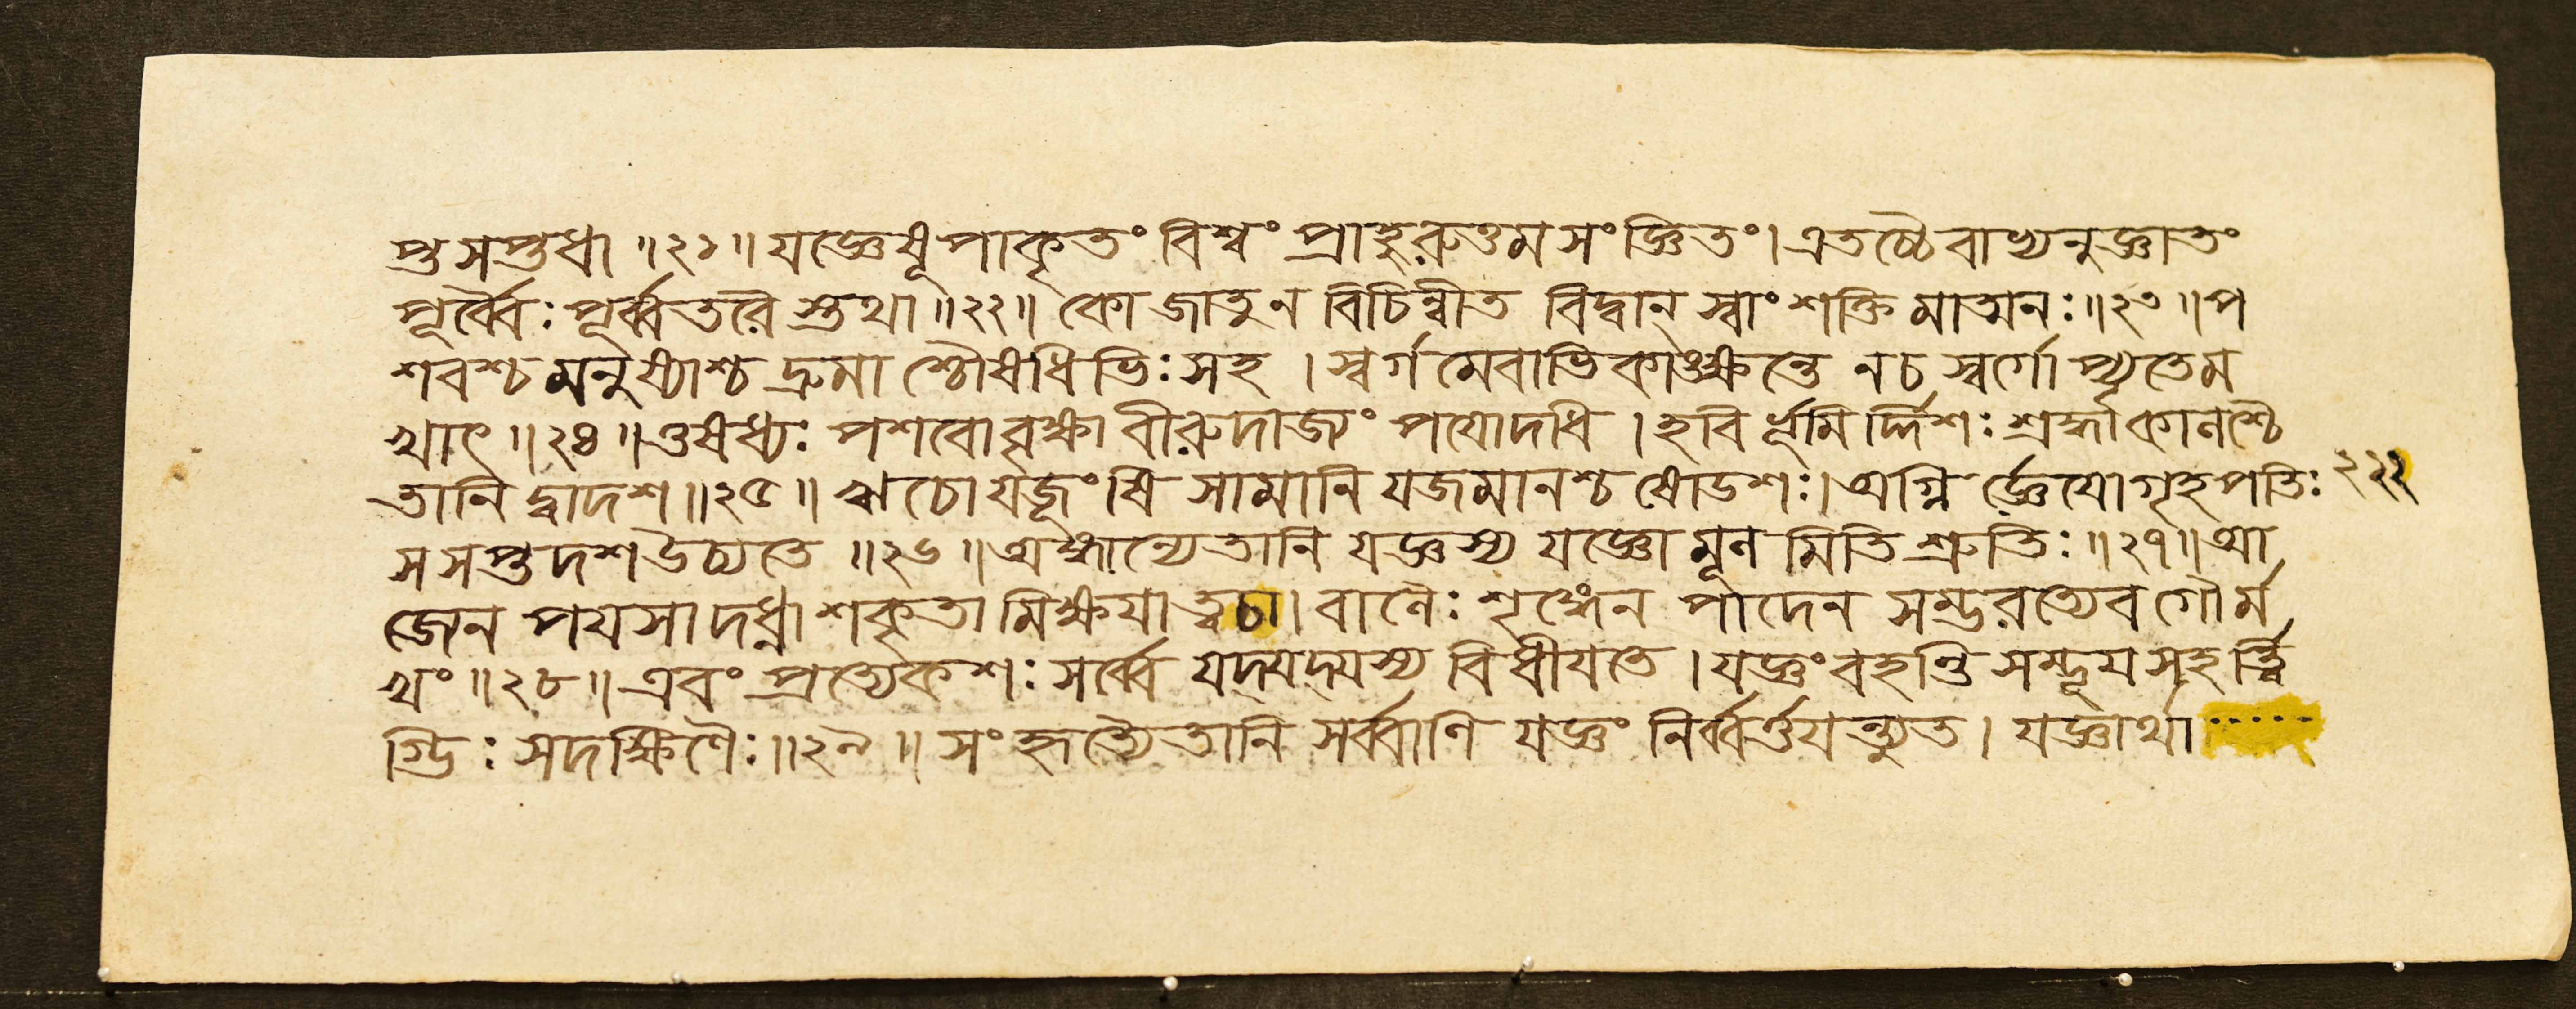 প্তসপ্তধা॥২১॥যজ্ঞেষূপাকৃতং বিশ্বং প্রাহুরুত্তমসংজ্ঞিতং।এতচ্চৈবাভ্যনুজ্ঞাতং
পূর্ব্বৈঃপূর্ব্বতরৈস্তথা॥২২॥ কোজাতু ন বিচিন্বীত বিদ্বান্ স্বাং শক্তিমাত্মনঃ॥২৩॥প
শবশ্চ মনুষ্যাশ্চ দ্রুমাশ্চৌষধিভিঃ সহ । স্বর্গমেবাভিকাঙ্ক্ষন্তে নচ স্বর্গোপ্যৃতেম
খাৎ॥২৪॥ওষধ্যঃ পশবোবৃক্ষা বীরুদাজ্যং পযোদধি । হবির্ভূমির্দ্দিশঃ শ্রদ্ধাকালশ্চৈ
তানি দ্বাদশ॥২৫॥ ঋচোযজূংষি সামানি যজমানশ্চ ষোডশঃ। অগ্নির্জ্ঞেযোগৃহপতিঃ ২২২
সসপ্তদশউচ্যতে ॥২৬॥ অঙ্গান্যেতানি যজ্ঞস্য যজ্ঞো মূলমিতি শ্রুতিঃ॥২৭॥আ
জ্যেন পযসাদধ্না শকৃতামিক্ষযাত্বচা। বালৈঃ শৃঙ্গেন পাদেন সম্ভরত্যেব গৌর্ম
খং॥২৮॥এবং প্রত্যেকশঃ সর্ব্বে যদ্যদ্যস্য বিধীযতে। যজ্ঞংবহন্তি সম্ভূয সহর্ত্ত্বি
গ্ভিঃ সদক্ষিণৈঃ॥২৯॥ সংহৃত্যৈতানি সর্ব্বাণি যজ্ঞং নির্ব্বর্ত্তযন্ত্যুত। যজ্ঞার্থা.....